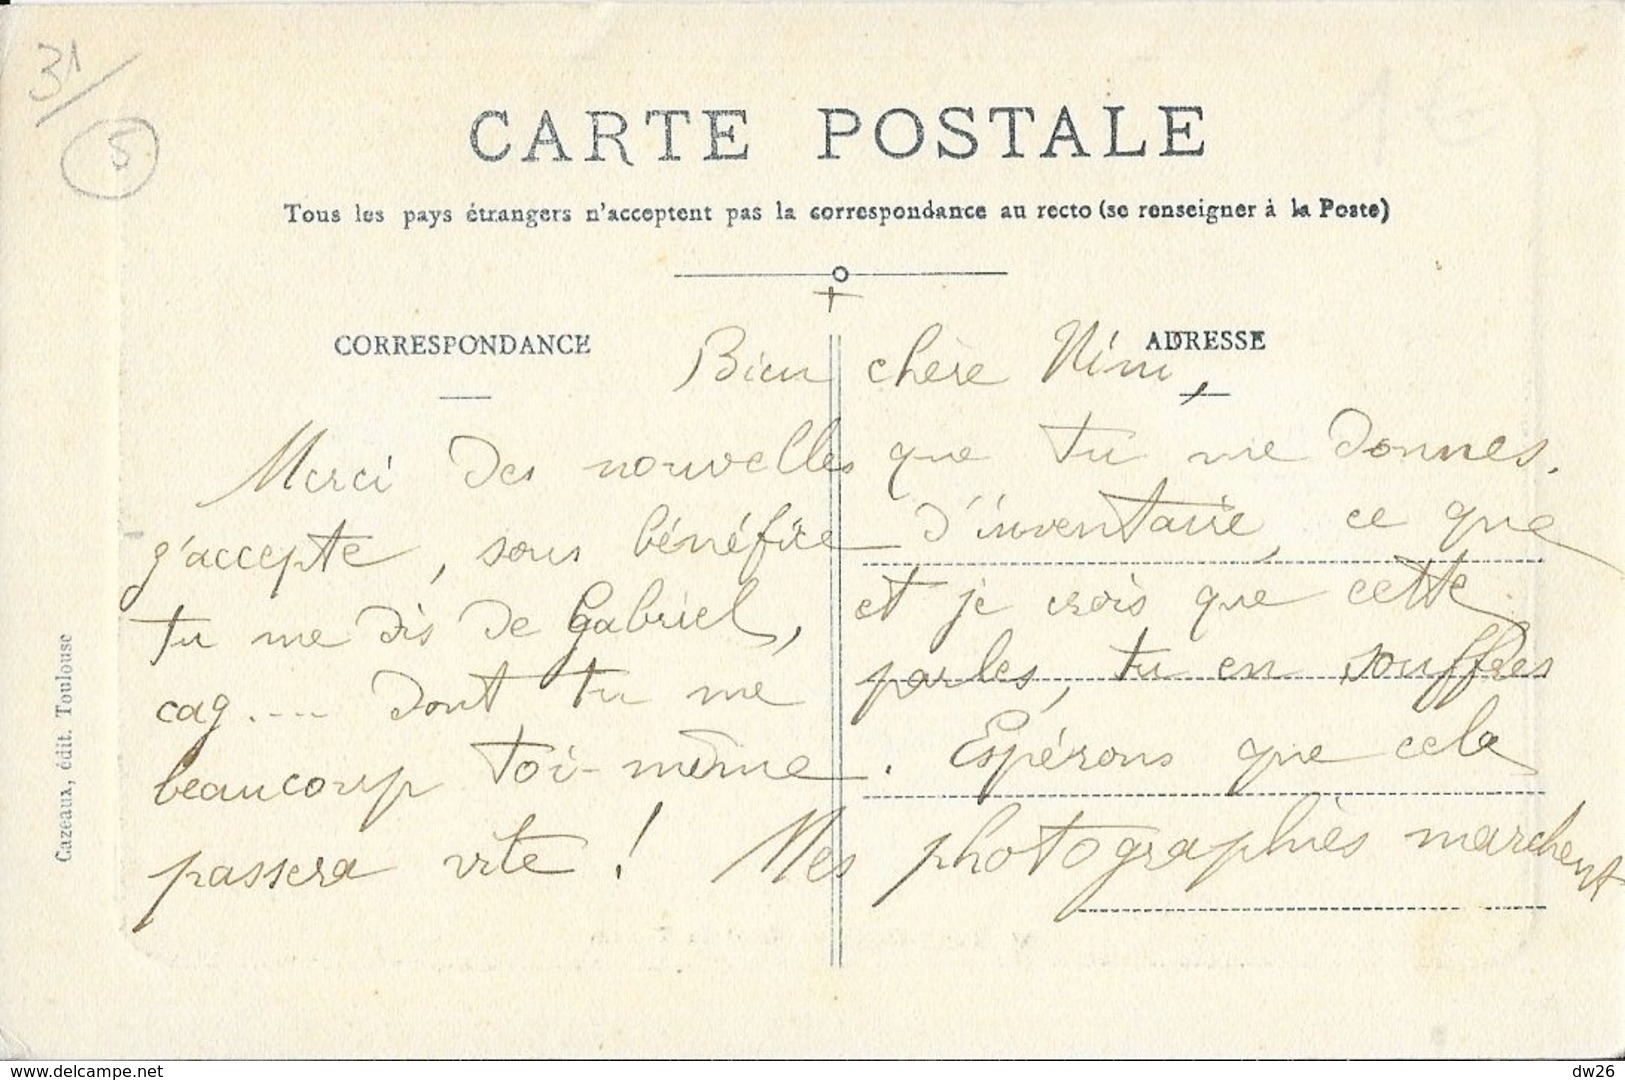 31/
5
CARTE POSTALE
Tous les pays étrangers n'acceptent pas la correspondance au recto (se renseigner à la Poste)
CORRESPONDANCE
ADRESSE
Bien chère Nini,
Merci des nouvelles que tu me donnes.
J'accepte, sous bénéfice d'inventaire, ce que
tu me dis de Gabriel, et je crois que cette
cag.... dont tu me parles, tu en souffres
beaucoup toi-même. Espérons que cela
passera vite ! Mes photographies marchent
Cazeaux, édit. Toulouse
www.delcampe.net
dw26